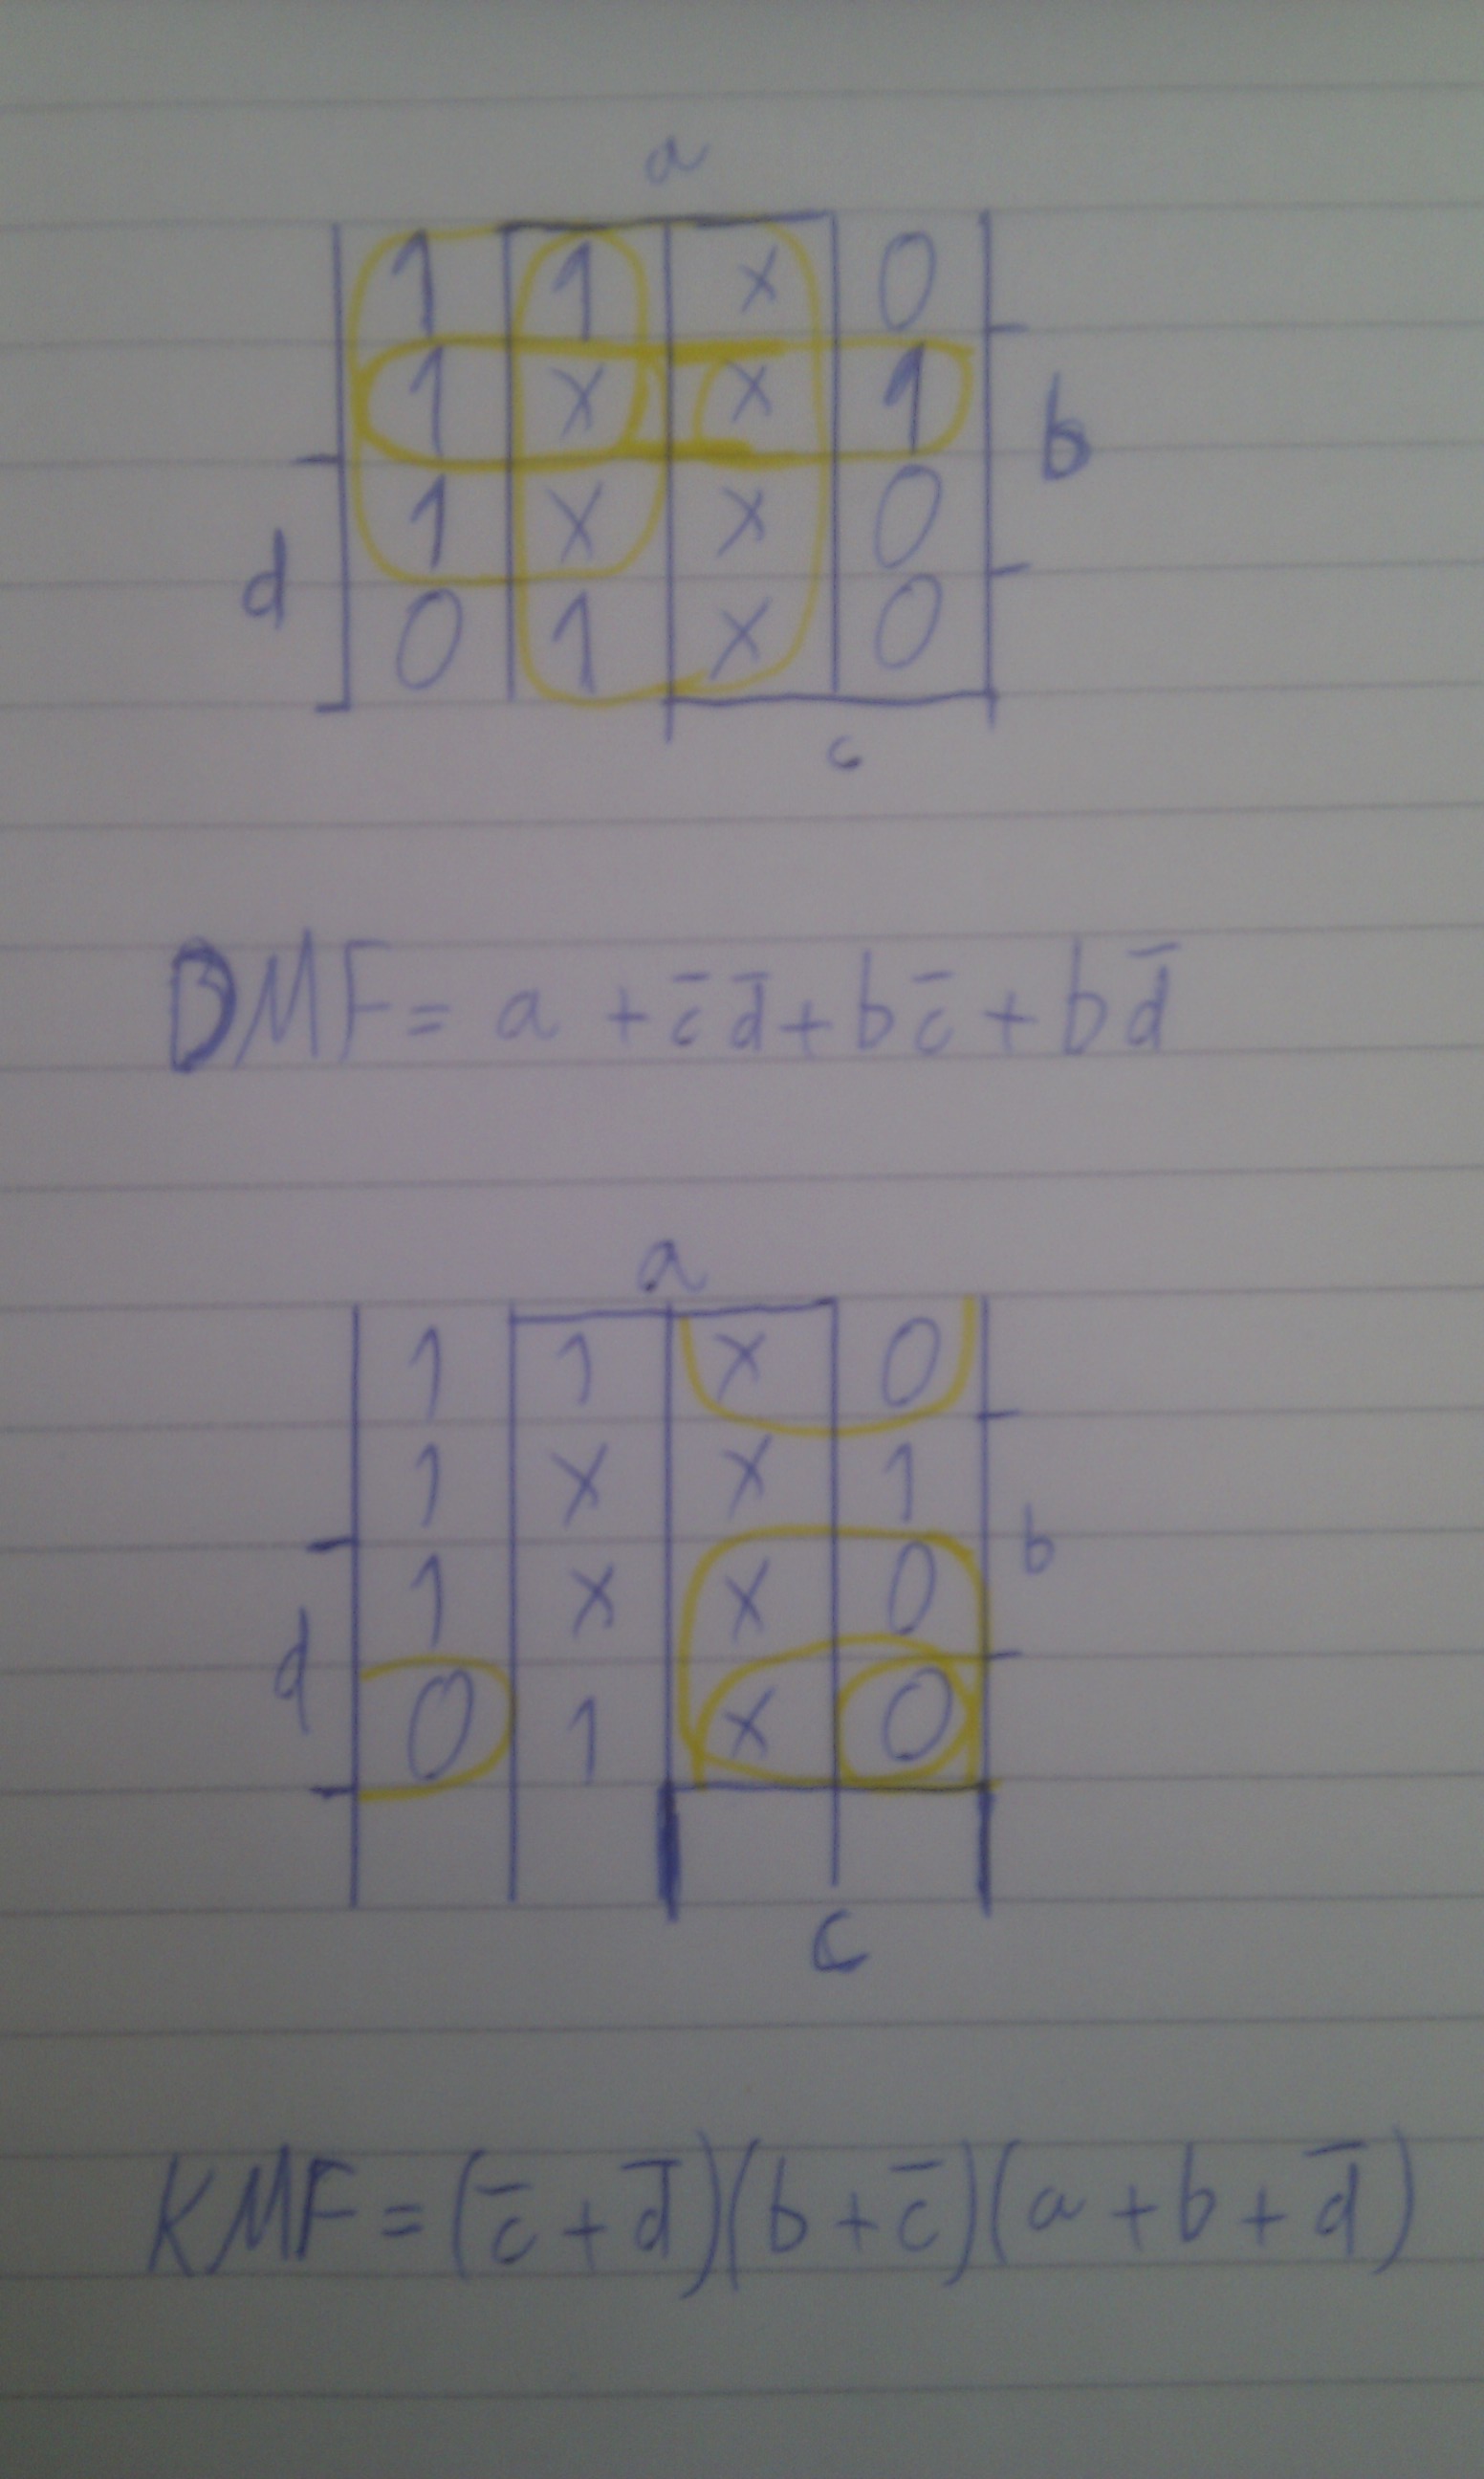 a
1 1 x 0
1 x x 1 b
1 x x 0
d
0 1 x 0
c
DMF = a + c̄ d̄ + b c̄ + b d̄
a
1 1 x 0
1 x x 1
b
1 x x 0
d
0 1 x 0
c
KMF = (c̄ + d̄)(b + c̄)(a + b + d̄)